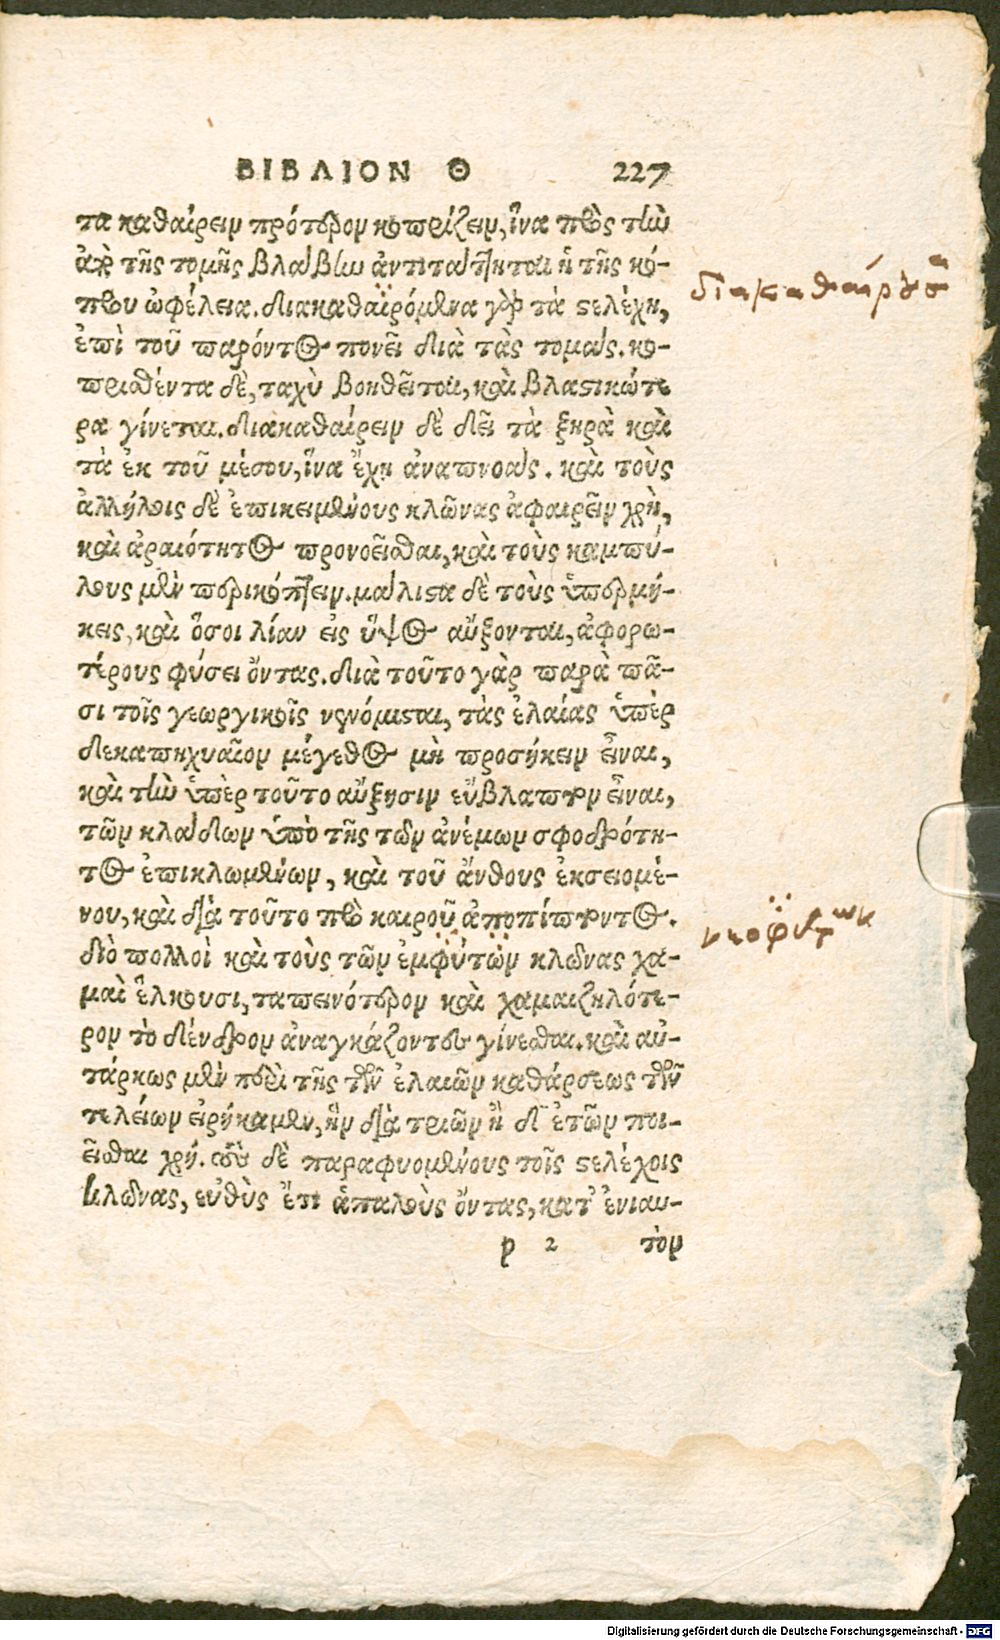 ΒΙΒΛΙΟΝ Θ 227
τα καθαίρειν πρότερον κοπρίζειν, ἵνα πρὸς τὴν
ἀπὸ τῆς τομῆς βλάβην ἀντιτάττηται ἡ τῆς κό-
πρου ὠφέλεια. διακαθαιρόμενα γὰρ τὰ στελέχη,
ἐπὶ τοῦ παρόντος πονεῖ διὰ τὰς τομάς. κο-
πρισθέντα δὲ, ταχὺ βοηθεῖται, καὶ βλαστικώτε
ρα γίνεται. διακαθαίρειν δὲ δεῖ τὰ ξηρὰ καὶ
τὰ ἐκ τοῦ μέσου, ἵνα ἔχῃ ἀναπνοάς. καὶ τοὺς
ἀλλήλοις δὲ ἐπικειμένους κλῶνας ἀφαιρεῖν χρὴ,
καὶ ἀραιότητος προνοεῖσθαι, καὶ τοὺς καμπύ-
λους μὲν περικόπτειν. μάλιστα δὲ τοὺς ὑπερμή-
κεις, καὶ ὅσοι λίαν εἰς ὕψος αὔξονται, ἀφορω-
τέρους φύσει ὄντας. διὰ τοῦτο γὰρ παρὰ πᾶ-
σι τοῖς γεωργικοῖς νενόμισται, τὰς ἐλαίας ὑπὲρ
δεκαπηχυαῖον μέγεθος μὴ προσήκειν εἶναι,
καὶ τὴν ὑπὲρ τοῦτο αὔξησιν εὔβλαπτον εἶναι,
τῶν κλάδων ὑπὸ τῆς τῶν ἀνέμων σφοδρότη-
τος ἐπικλωμένων, καὶ τοῦ ἄνθους ἐκσειομέ-
νου, καὶ διὰ τοῦτο πρὸ καιροῦ ἀποπίπτοντος.
διὸ πολλοὶ καὶ τοὺς τῶν ἐμφύτων κλῶνας χα-
μαὶ ἕλκουσι, ταπεινότερον καὶ χαμαιζηλότε-
ρον τὸ δένδρον ἀναγκάζοντες γίνεσθαι. καὶ αὐ-
τάρκως μὲν περὶ τῆς τῶν ἐλαιῶν καθάρσεως τῶν
τελείων εἰρήκαμεν, ἣν διὰ τριῶν ἢ δ῀ ἐτῶν ποι-
εῖσθαι χρή. τοὺς δὲ παραφυομένους τοῖς στελέχοις
κλῶνας, εὐθὺς ἔτι ἁπαλοὺς ὄντας, κατ᾽ ἐνιαυ-
p 2 τὸν
νεοφύτων